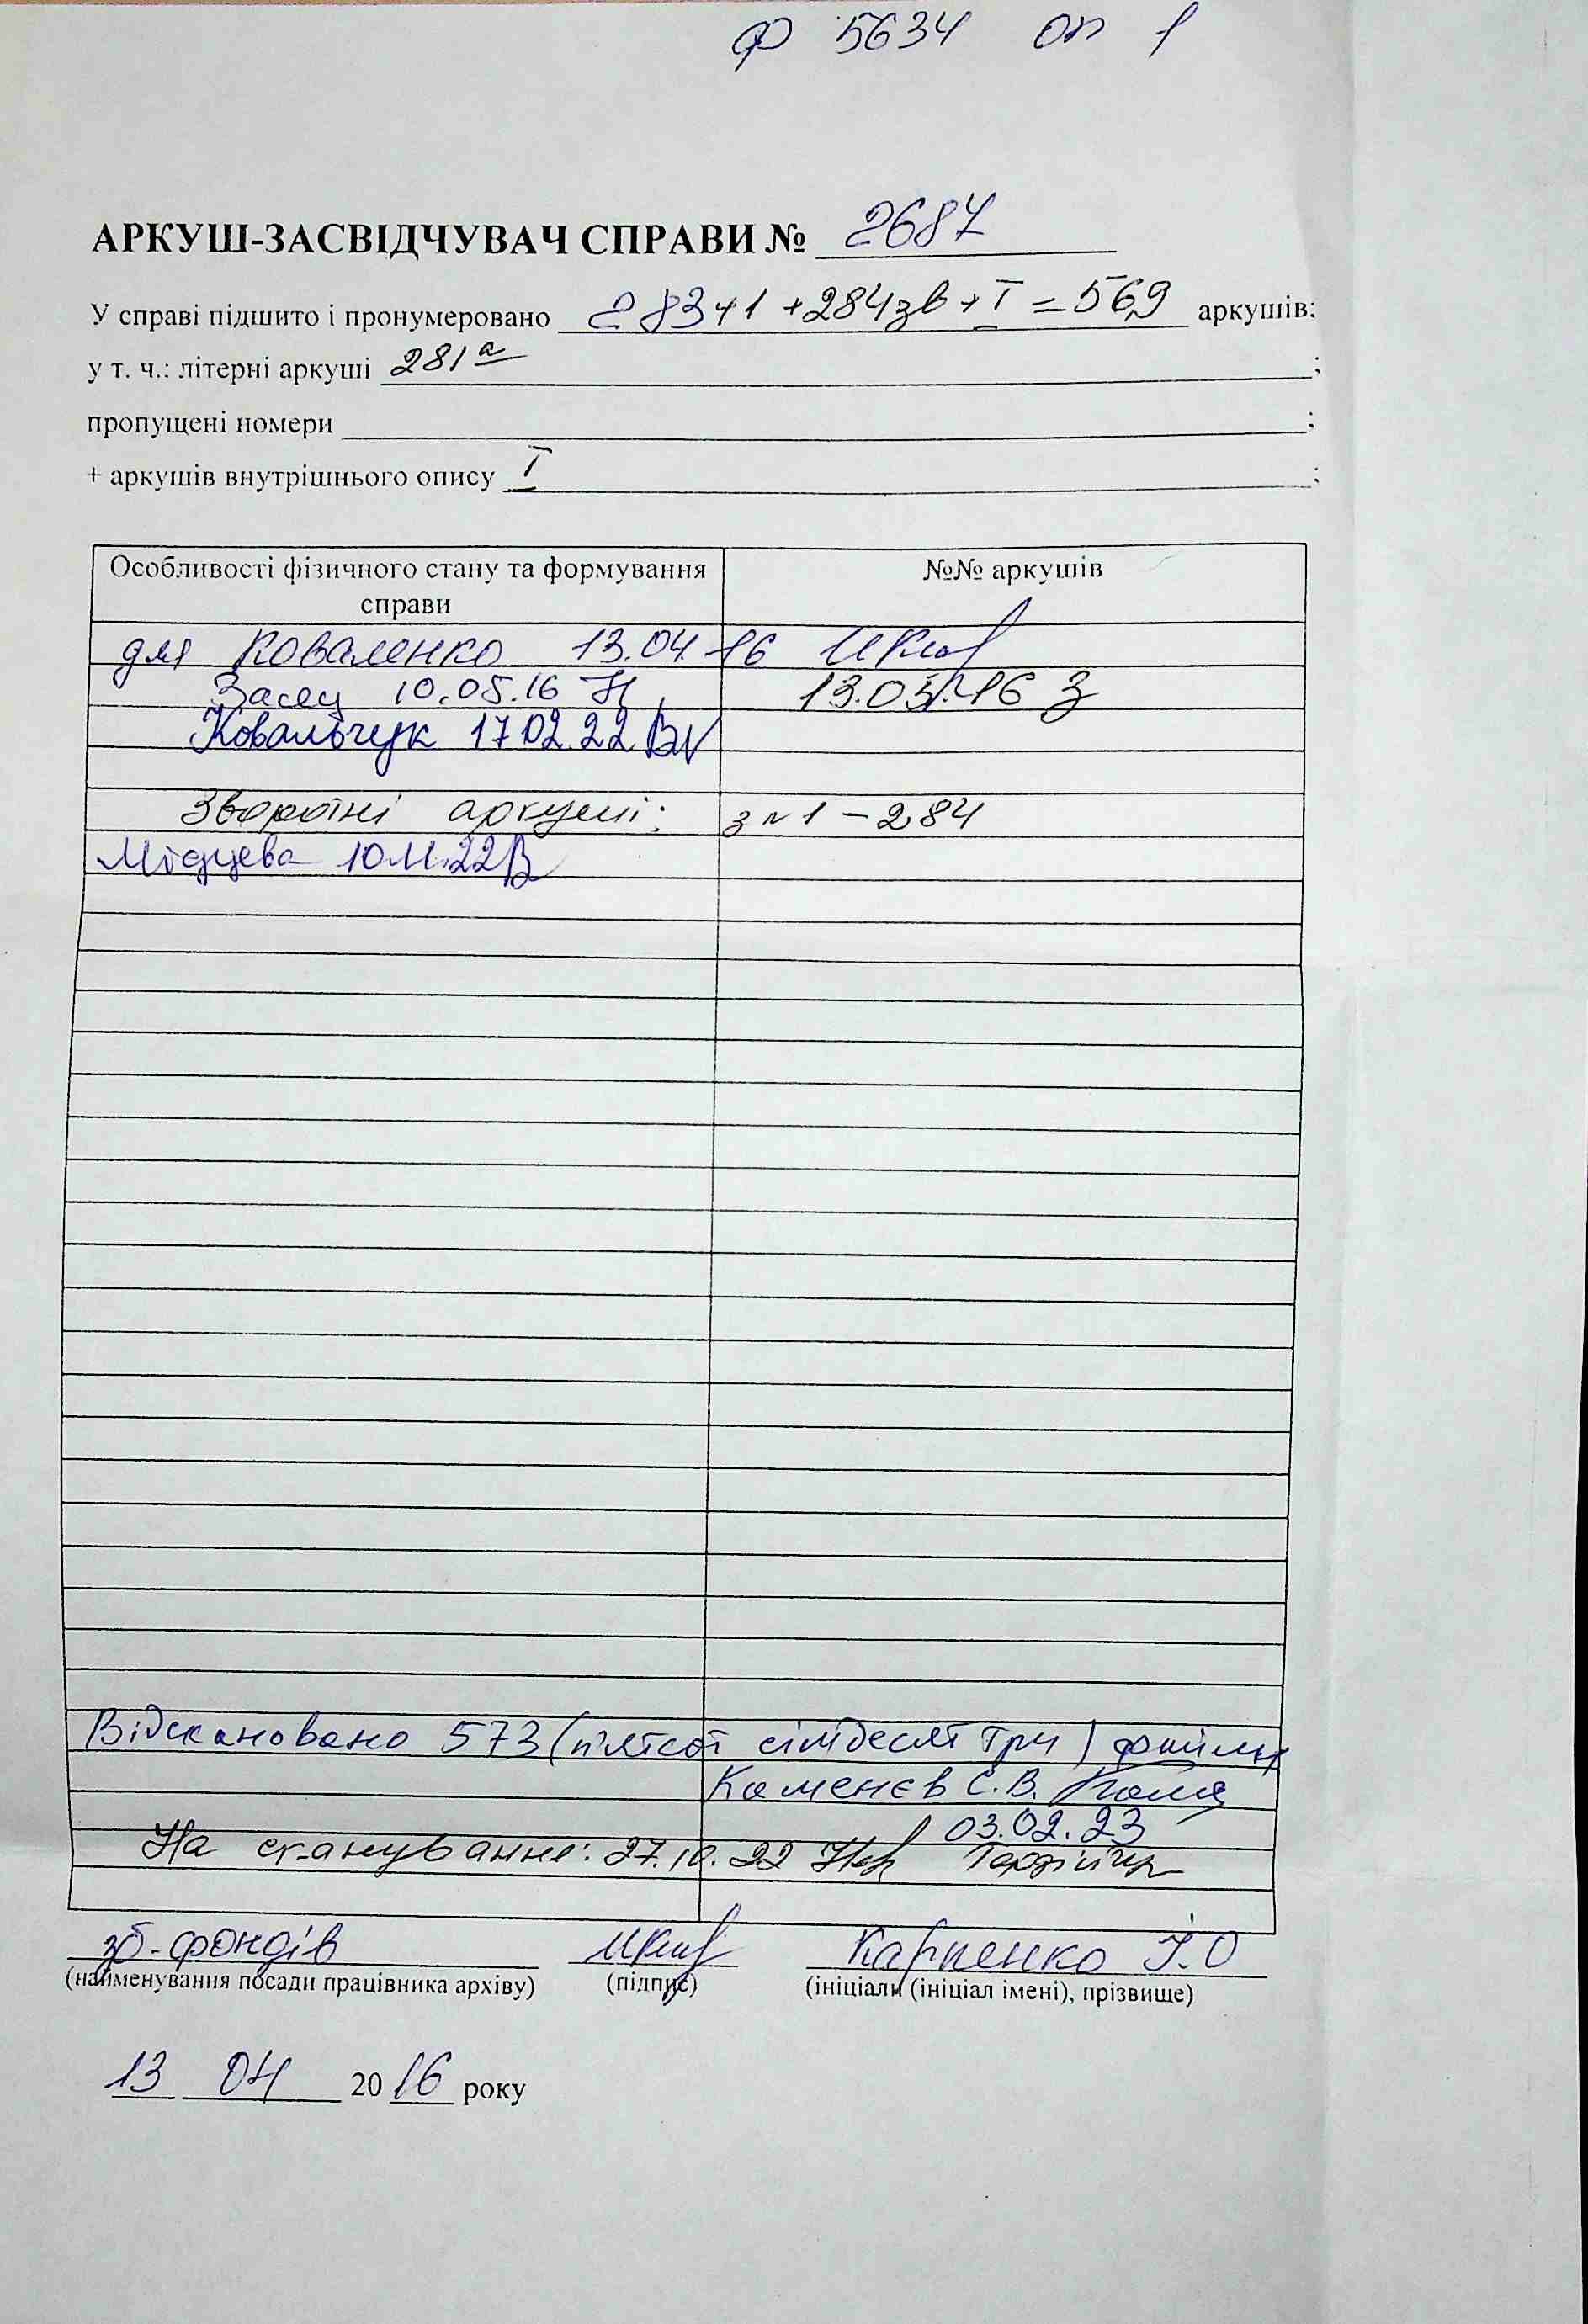 ф 5634 оп 1
АРКУШ-ЗАСВІДЧУВАЧ СПРАВИ № 2687
У справі підшито і пронумеровано 283+1 +284зв + I = 569 аркушів:
у т. ч.: літерні аркуші 281а ;
пропущені номери ;
+ аркушів внутрішнього опису I ;
Особливості фізичного стану та формування справи
№№ аркушів
для Коваленко 13.04.16
Засец 10.05.16 13.05.16
Ковальчук 17.02.22
Зворотні аркуші: 1 – 284
10.11.22
Відскановано 573 (п'ятсот сімдесят три) файли
Каменєв С.В.
03.02.23
На сканування: 27.10.22
зб. фондів Карпенко І.О
(найменування посади працівника архіву) (підпис) (ініціали (ініціал імені), прізвище)
13 04 2016 року